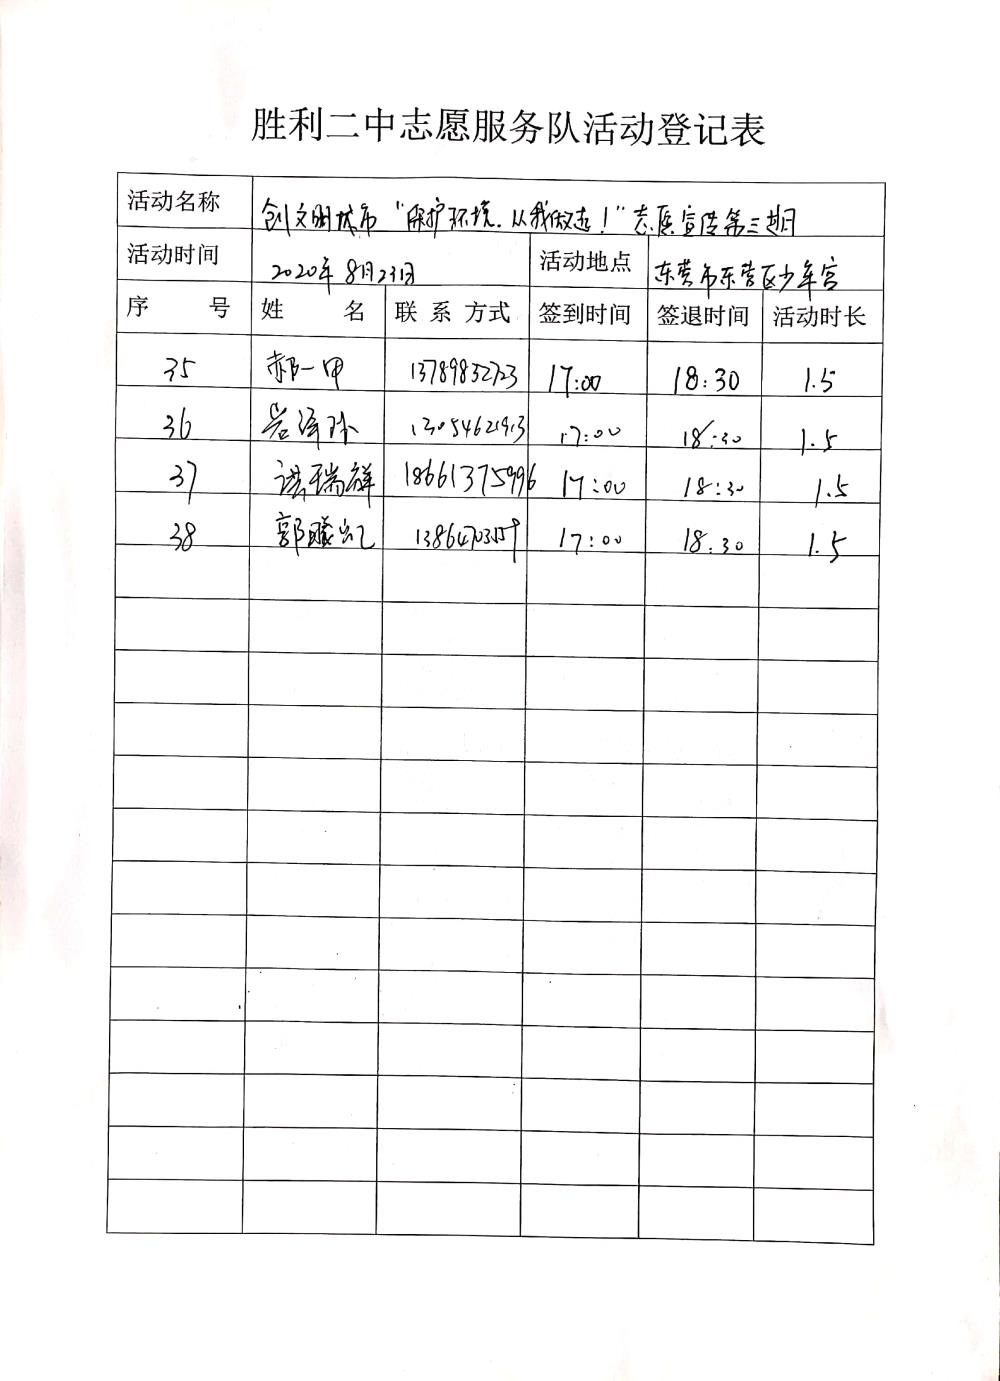 胜利二中志愿服务队活动登记表
活动名称 创文明城市“保护环境.从我做起！”志愿宣传第三期
活动时间 2020年8月23日 活动地点 东营市东营区少年宫
序号 姓名 联系方式 签到时间 签退时间 活动时长
35 郝一甲 13789852723 17:00 18:30 1.5
36 17:00 18:30 1.5
37 洪瑞祥 18661375996 17:00 18:30 1.5
38 郭曦 13864703559 17:00 18:30 1.5